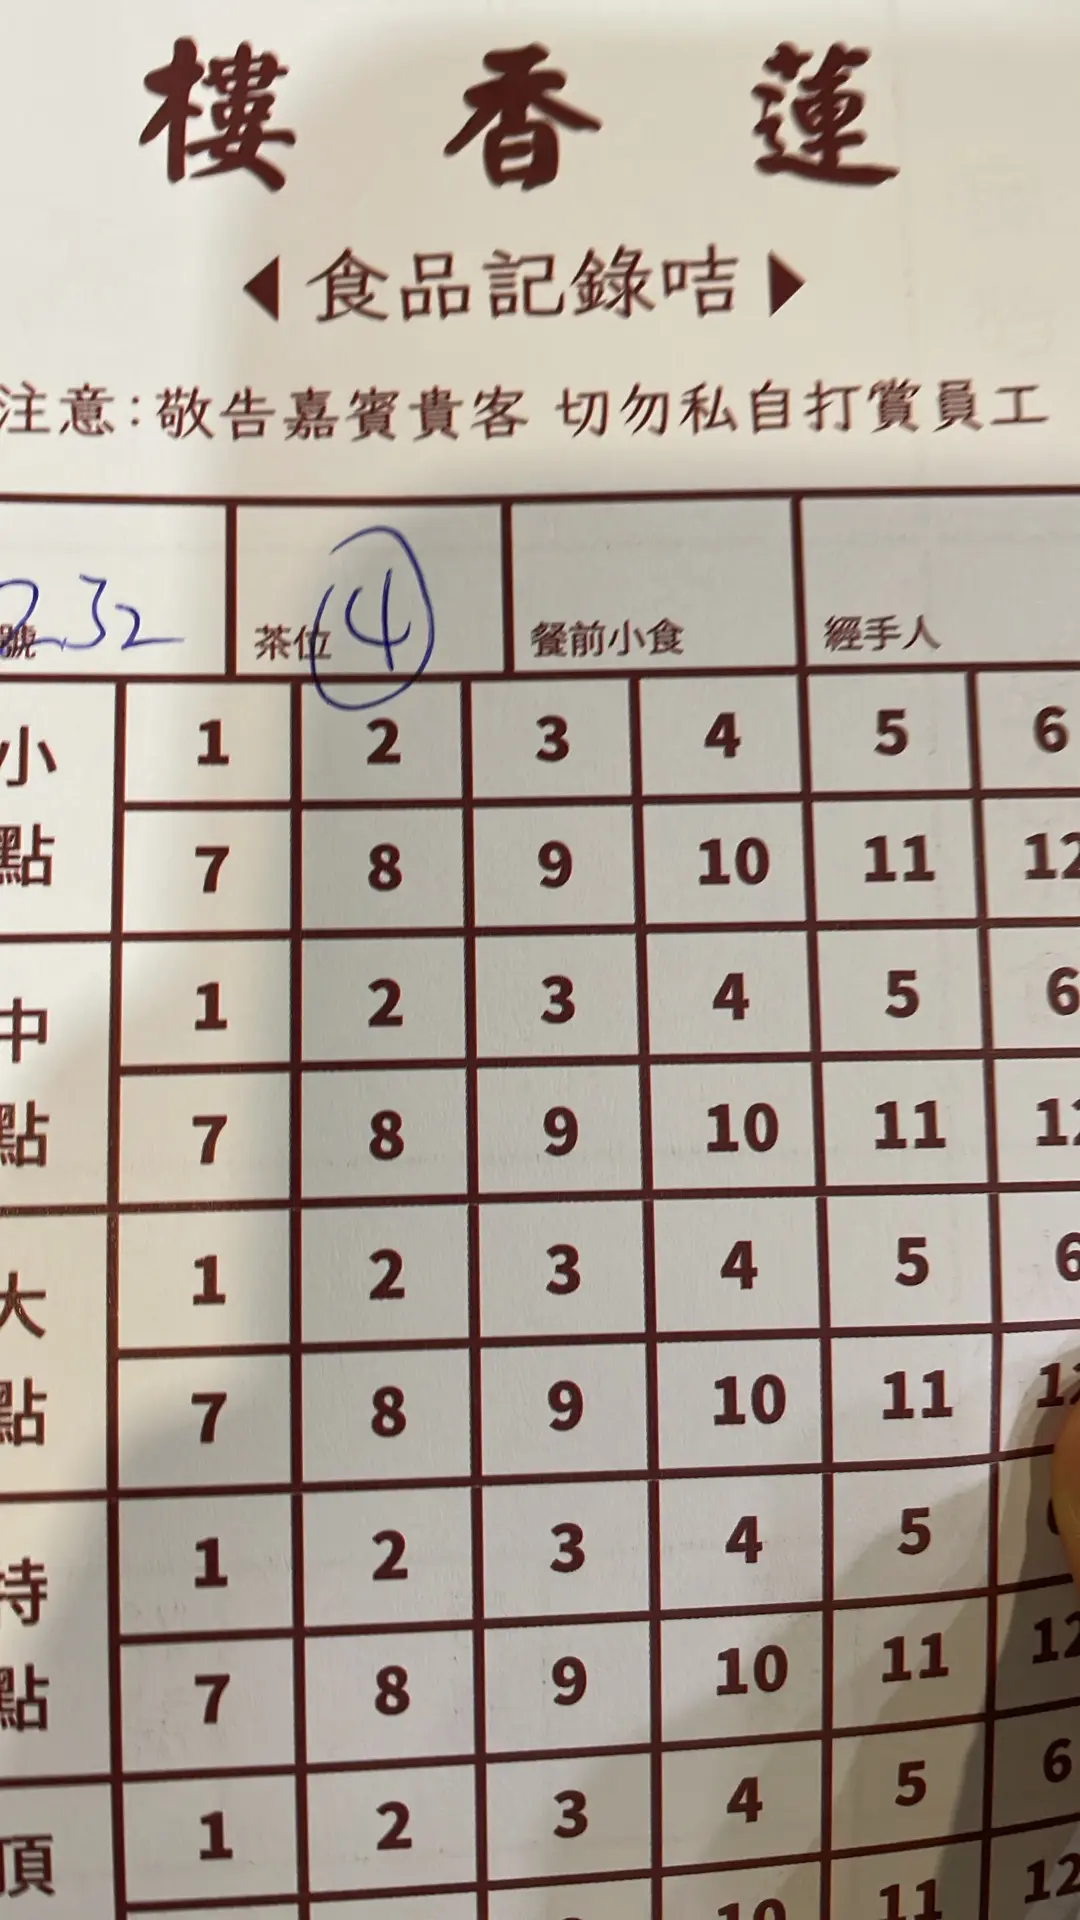 樓 香 蓮
食品記錄咭
注意:敬告嘉賓貴客 切勿私自打賞員工
號 232 茶位 4 餐前小食 經手人
小點 1 2 3 4 5 6
7 8 9 10 11 12
中點 1 2 3 4 5 6
7 8 9 10 11 12
大點 1 2 3 4 5 6
7 8 9 10 11 12
特點 1 2 3 4 5
7 8 9 10 11 12
頂 1 2 3 4 5 6
10 11 12